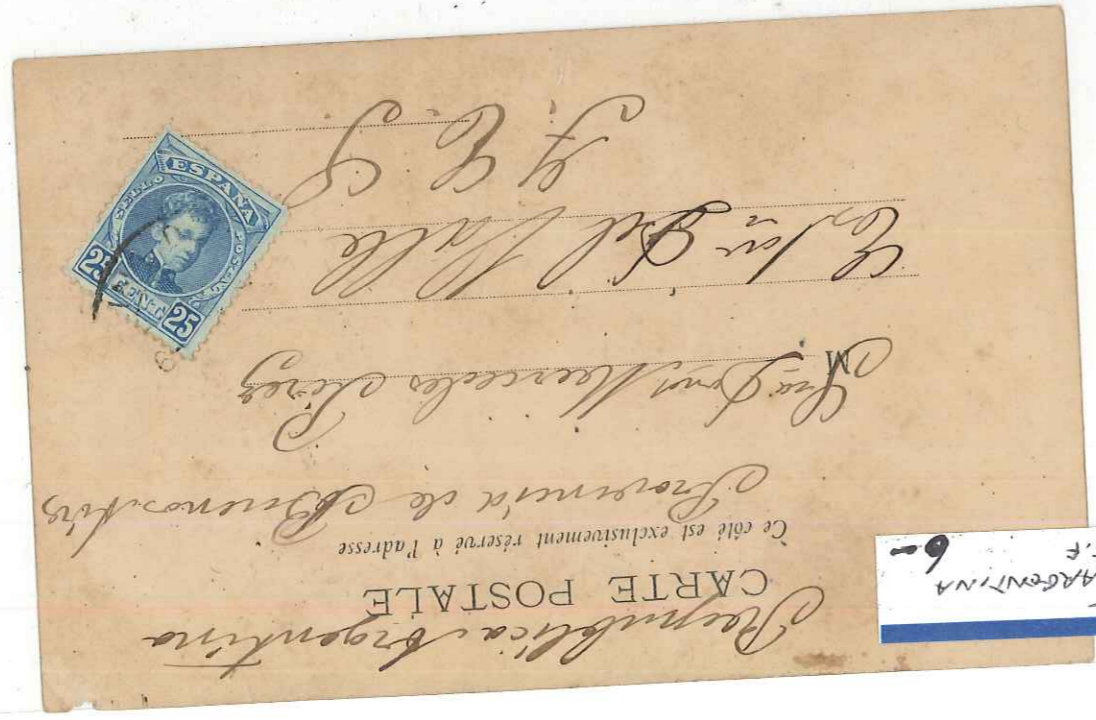 República Argentina
CARTE POSTALE
Ce côté est exclusivement réservé à l'adresse
Provincia de Buenos Aires
M
Sra Dona Mercedes Pérez
Del Valle
F. C. S.
ESPAÑA
25 25
ARGENTINA
6-